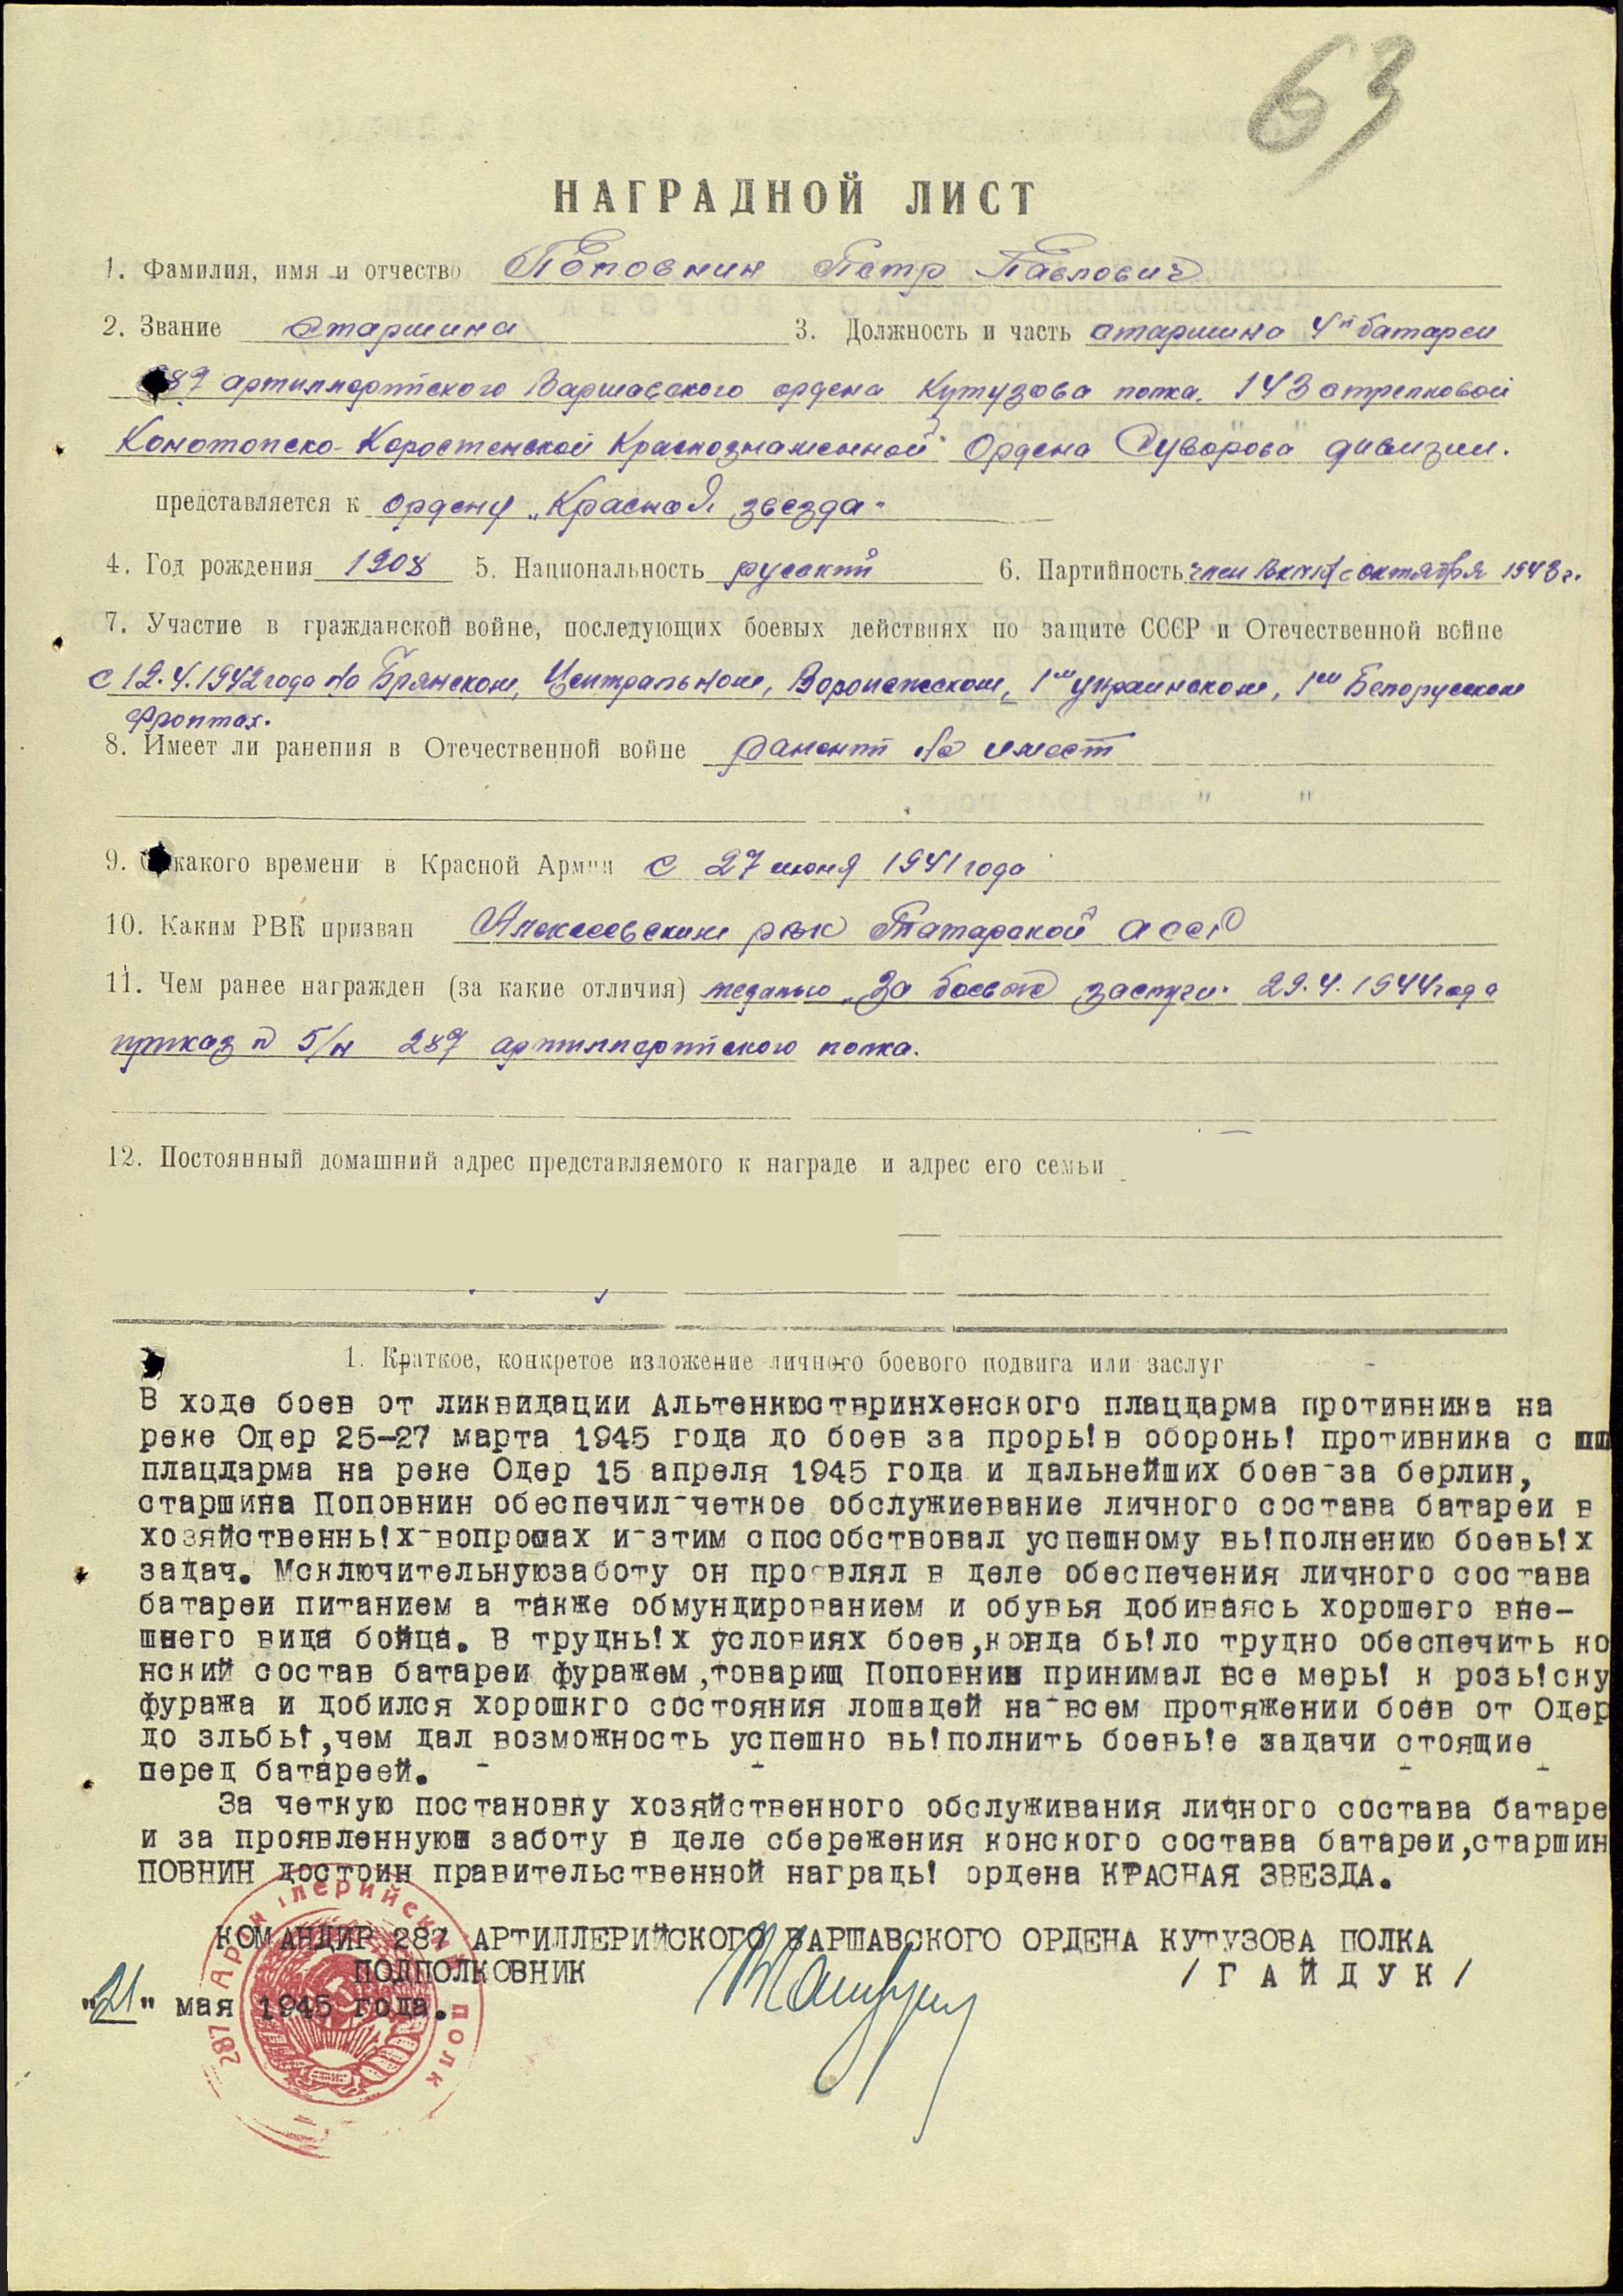 63
НАГРАДНОЙ ЛИСТ
1. Фамилия, имя и отчество Поповнин Петр Павлович
2. Звание старшина 3. Должность и часть старшина 4й батареи
287 артиллерийского Варшавского ордена Кутузова полка. 143 стрелковой
Конотопско-Коростенской Краснознаменной Ордена Суворова дивизии.
представляется к ордену „Красная звезда"
4. Год рождения 1908 5. Национальность русский 6. Партийность член ВКП(б) с октября 1943 г.
7. Участие в гражданской войне, последующих боевых действиях по защите СССР и Отечественной войне
с 12.4.1942 года на Брянском, Центральном, Воронежском, 1м Украинском, 1м Белорусском
фронтах.
8. Имеет ли ранения в Отечественной войне ранений не имеет
9. С какого времени в Красной Армии с 27 июня 1941 года
10. Каким РВК призван Алексеевским рвк Татарской АССР
11. Чем ранее награжден (за какие отличия) медалью „За боевые заслуги" 29.4.1944 года
приказ № 5/н 287 артиллерийского полка.
12. Постоянный домашний адрес представляемого к награде и адрес его семьи
1. Краткое, конкретое изложение личного боевого подвига или заслуг
В ходе боев от ликвидации Альтенкюствринхенского плацдарма противника на
реке Одер 25-27 марта 1945 года до боев за прорь!в оборонь! противника с шш
плацдарма на реке Одер 15 апреля 1945 года и дальнейших боев-за берлин,
старшина Поповнин обеспечил-четкое обслужиевание личного состава батареи в
хозяйственнь!х-вопросах и-этим способствовал успешному вь!полнению боевь!х
задач. Исключительнуюзаботу он проявлял в деле обеспечения личного состава
батареи питанием а также обмундированием и обувья добиваясь хорошего вне-
шнего вида бойца. В труднь!х условиях боев,когда бь!ло трудно обеспечить ко
нский состав батареи фуражем,товарищ Поповнин принимал все мерь! к розь!ску
фуража и добился хорошкго состояния лошадей на-всем протяжении боев от Одер
до эльбь!,чем дал возможность успешно вь!полнить боевь!е задачи стоящие
перед батареей.
За четкую постановку хозяйственного обслуживания личного состава батаре
и за проявленнуюш заботу в деле сбережения конского состава батареи,старшин
ПОВНИН достоин правительственной наградь! ордена КРАСНАЯ ЗВЕЗДА.
КОМАНДИР 287 АРТИЛЛЕРИЙСКОГО ВАРШАВСКОГО ОРДЕНА КУТУЗОВА ПОЛКА
ПОДПОЛКОВНИК / Г А Й Д У К /
"21" мая 1945 года.
287 АРТИЛЛЕРИЙСКИЙ ПОЛК